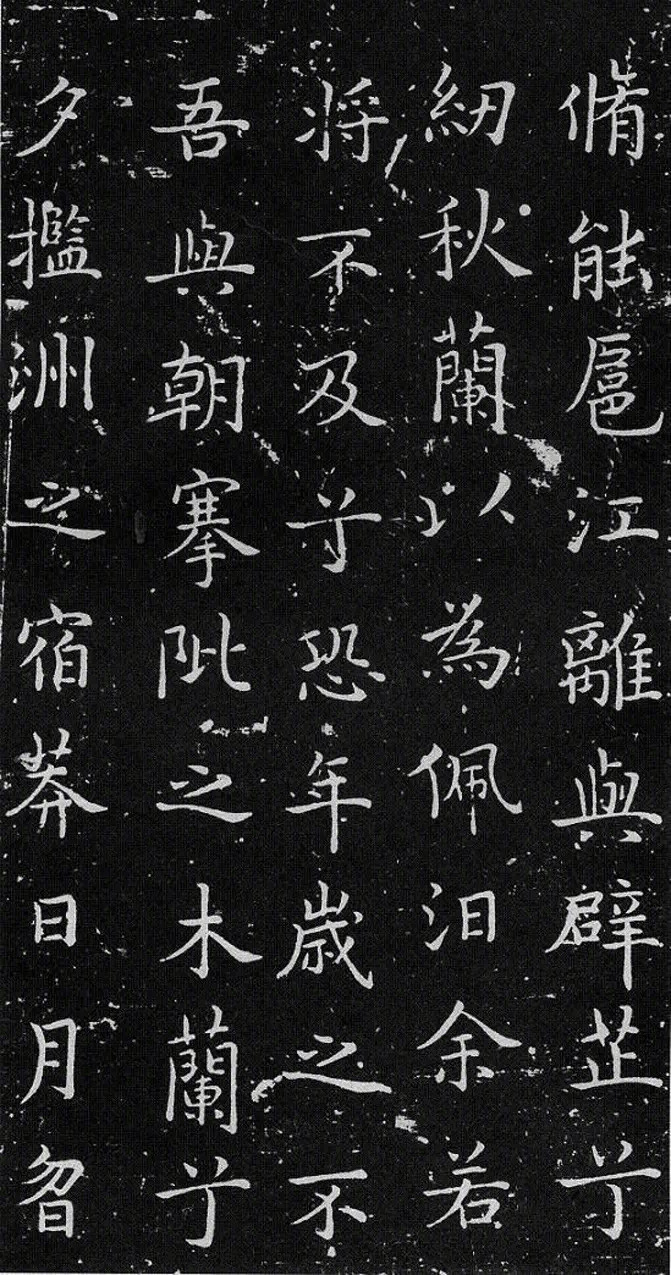 脩能扈江離與辟芷兮
紉秋蘭以為佩汨余若
将不及兮恐年歳之不
吾與朝搴阰之木蘭兮
夕擥洲之宿莽日月曶